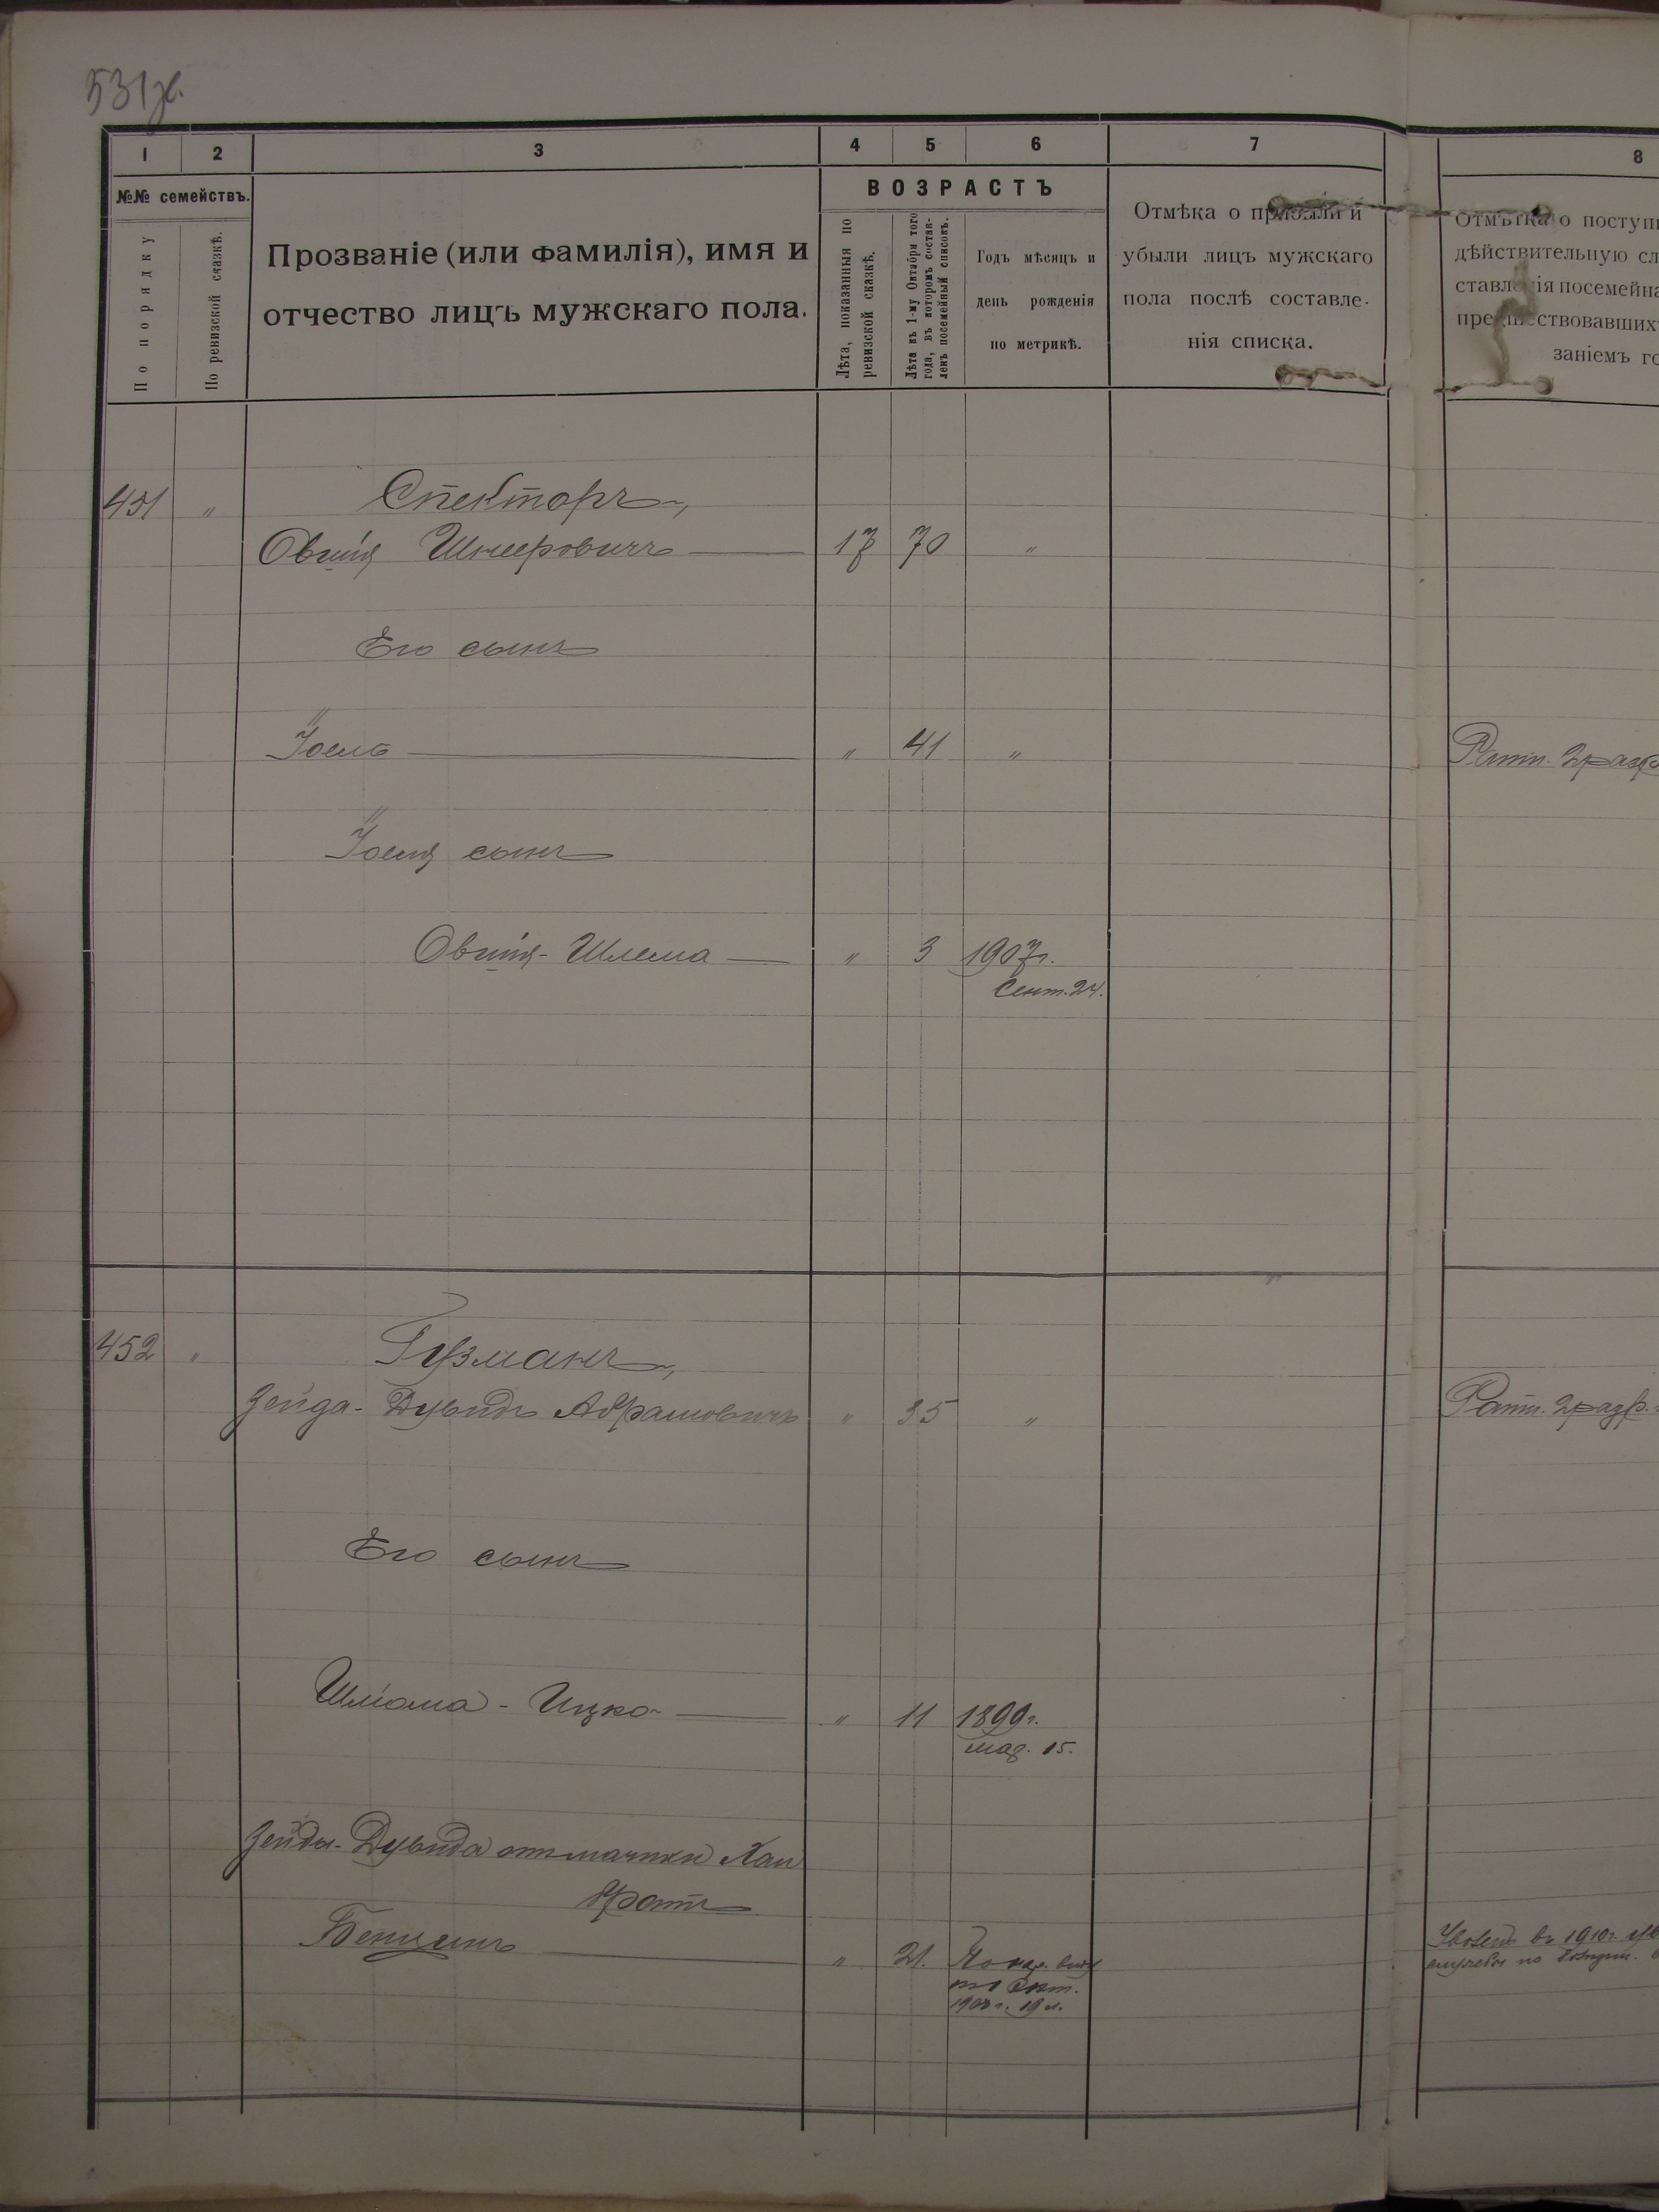 531
1 2 3 4 5 6 7 8
№№ семействъ.
По порядку
По ревизской сказкѣ.
Прозваніе (или фамилія), имя и
отчество лицъ мужскаго пола.
ВОЗРАСТЪ
Лѣта, показанныя по
ревизской сказкѣ.
Лѣта къ 1-му Октября того
года, въ которомъ состав-
ленъ посемейный списокъ.
Годъ мѣсяцъ и
день рожденія
по метрикѣ.
Отмѣка о прибыли и
убыли лицъ мужскаго
пола послѣ составле-
нія списка.
Отмѣтка о поступ
дѣйствительную сл
ставленія посемейна
предшествовавших
заніемъ го
451 " Спекторъ,
Овшія Шнееровичъ 17 70 "
Его сынъ
Іоель " 41 " Ратн. 2 разр
Іоеля сынъ
Овшія-Шлема " 3 1907 г.
Сент. 24.
452 " Гузманъ,
Зейда-Дувидъ Абрамовичъ " 35 " Ратн. 2 разр.
Его сынъ
Шліома-Ицко " 11 1899 г.
мая. 15.
Зейды-Дувида отъ мачихи Хаи
братъ
Бенціинъ " 21. По нар. виду
1908 г. 19 л.
въ 1910 г.
по